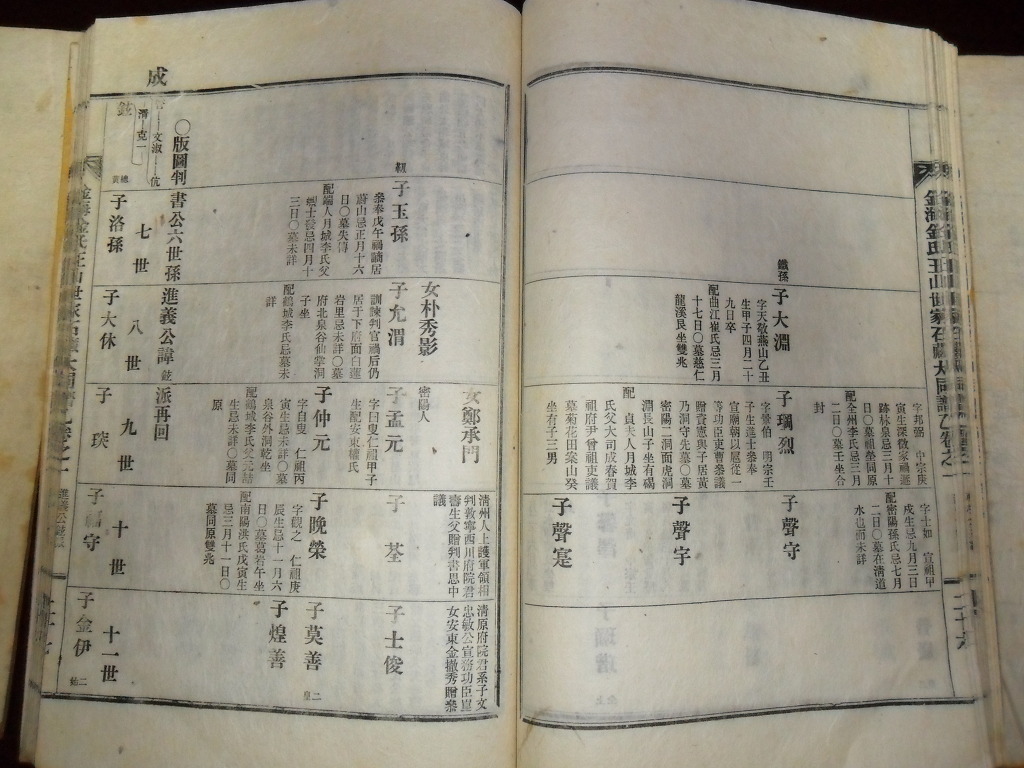 金海金氏王山世家石龍大同譜乙卷之一
字士如
宣祖甲
戌生忌九月三日
配密陽孫氏忌七月
二日〇墓在溝道
水也而未詳
字邦弼
中宗庚
寅生深敬家禍遯
跡林泉忌三月十
日〇墓祖塋同原
配全州李氏忌三月
二日〇墓壬坐合
封
子聲守
子聲宇
子聲寔
子瑪烈
字瑩伯
明宗壬
子生進士參奉
宣廟朝以扈從一
等功臣吏曹參議
贈貢憲與子居黃
乃洞守先墓〇墓
密陽二洞面虎洞
淵長山子坐有碣
配
貞夫人月城李
氏父大司成春賀
祖府尹曾祖吏議
墓菊花田案山癸
坐有子三男
鐵孫
子大淵
字天敬燕山乙丑
生甲子四月二十
九日卒
配曲江崔氏忌三月
十七日〇墓慈仁
龍溪艮坐雙兆
清原府院君系子文
忠敏公宣務功臣
女安東金撤秀贈參
清州人上護軍領相
判敦寧西川府院君
壽生父贈判書思中
議
女鄭承門
密陽人
女朴秀影
子玉孫
參奉戊午禍謫居
蔚山忌正月十六
日〇墓失傳
配端人月城李氏父
進士長忌四月十
三日〇墓未詳
子允渭
訓諫判官禍后仍
居于下府面白蓮
岩里忌未詳〇墓
府北泉谷仙掌洞
子坐
配鶴城李氏忌墓未
詳
子孟元
字曰叟仁祖甲子
生配安東權氏
子荃
子士俊
子仲元
字自叟
仁祖丙
寅生忌未詳〇墓
泉谷外洞乾坐
配鶴城李氏父元喆
生忌未詳〇墓同
原
子晚榮
字觀之
仁祖庚
辰生忌十一月六
日〇墓葛岩午坐
配南陽洪氏戊寅生
忌三月十一日〇
墓同原雙兆
子莫善
子煌善
〇版圖判書公六世孫進義公諱鉉派再回
成
七世
八世
九世
十世
十一世
鉉
文淑
伉
子洛孫
子大休
子琰
子福守
子金伊